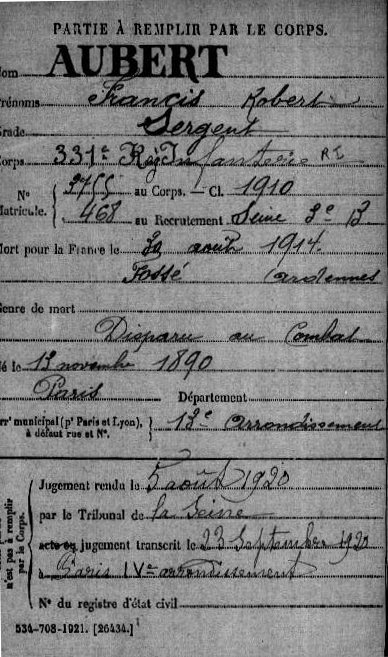 PARTIE À REMPLIR PAR LE CORPS.
Nom AUBERT
Prénoms Francis Robert
Grade Sergent
Corps 331e Rég Infanterie RI
N° Matricule. { 3755 au Corps. — Cl. 1910
468 au Recrutement Seine 3e B
Mort pour la France le 30 août 1914
Fossé Ardennes
Genre de mort
Disparu au Combat
Né le 13 novembre 1890
Paris Département
Arrt municipal (pr Paris et Lyon), à défaut rue et N°. } 13e arrondissement
Jugement rendu le 5 août 1920
par le Tribunal de la Seine
acte ou jugement transcrit le 23 Septembre 1920
à Paris IVe arrondissement
N° du registre d'état civil
n'est pas à remplir par le Corps.
534-708-1921. [26434.]